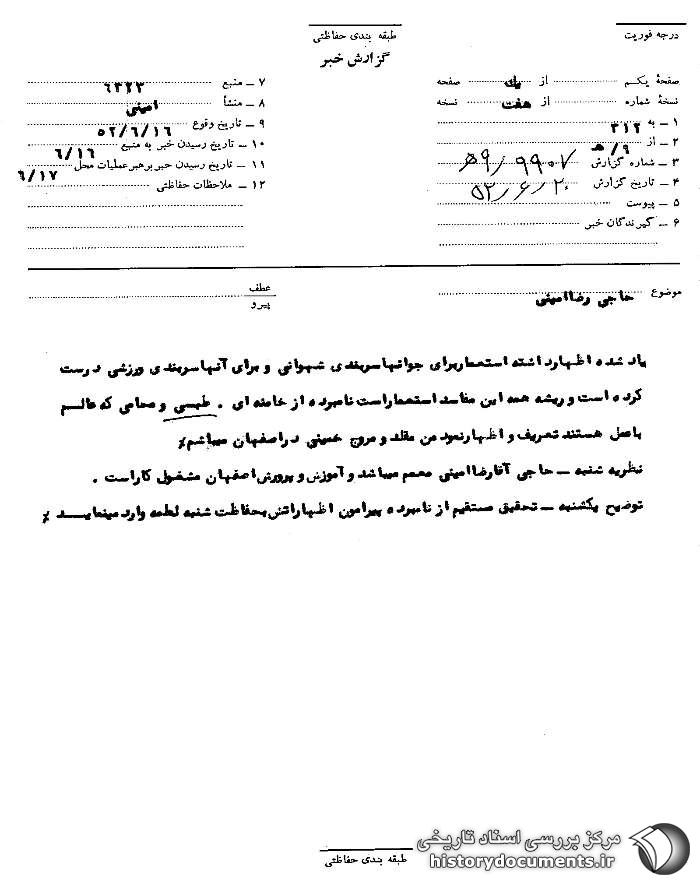 درجه فوریت
طبقه بندی حفاظتی
گزارش خبر
صفحهٔ یکم از یك صفحه
نسخهٔ شماره از هفت نسخه
۱ ــ به ۳۱۲
۲ ــ از ۹/ﻫ
۳ ــ شماره گزارش ۹۹۰۷/ﻫ۹
۴ ــ تاریخ گزارش ۵۲/۶/۲۰
۵ ــ پیوست
۶ ــ گیرندگان خبر
۷ ــ منبع ۶۳۲۳
۸ ــ منشأ امینی
۹ ــ تاریخ وقوع ۵۲/۶/۱۶
۱۰ ــ تاریخ رسیدن خبر به منبع ۶/۱۶
۱۱ ــ تاریخ رسیدن خبر برهبر عملیات محل ۶/۱۷
۱۲ ــ ملاحظات حفاظتی
موضوع حاجی رضا امینی
عطف
پیرو
یاد شده اظهار داشته استعمار برای جوانها سربندی شهوانی و برای آنها سربندی ورزشی درست
کرده است و ریشه همه این مفاسد استعمار است نامبرده از خامنه ای . طبسی و محامی که عالم
باعمل هستند تعریف و اظهار نمود من مقلد و مروج خمینی در اصفهان میباشم٪
نظریه شنبه ــ حاجی آقا رضا امینی معمم میباشد و آموزش و پرورش اصفهان مشغول کار است .
توضیح یکشنبه ــ تحقیق مستقیم از نامبرده پیرامون اظهاراتش بحفاظت شنبه لطمه وارد مینماید ٪
طبقه بندی حفاظتی
مرکز بررسی اسناد تاریخی
historydocuments.ir